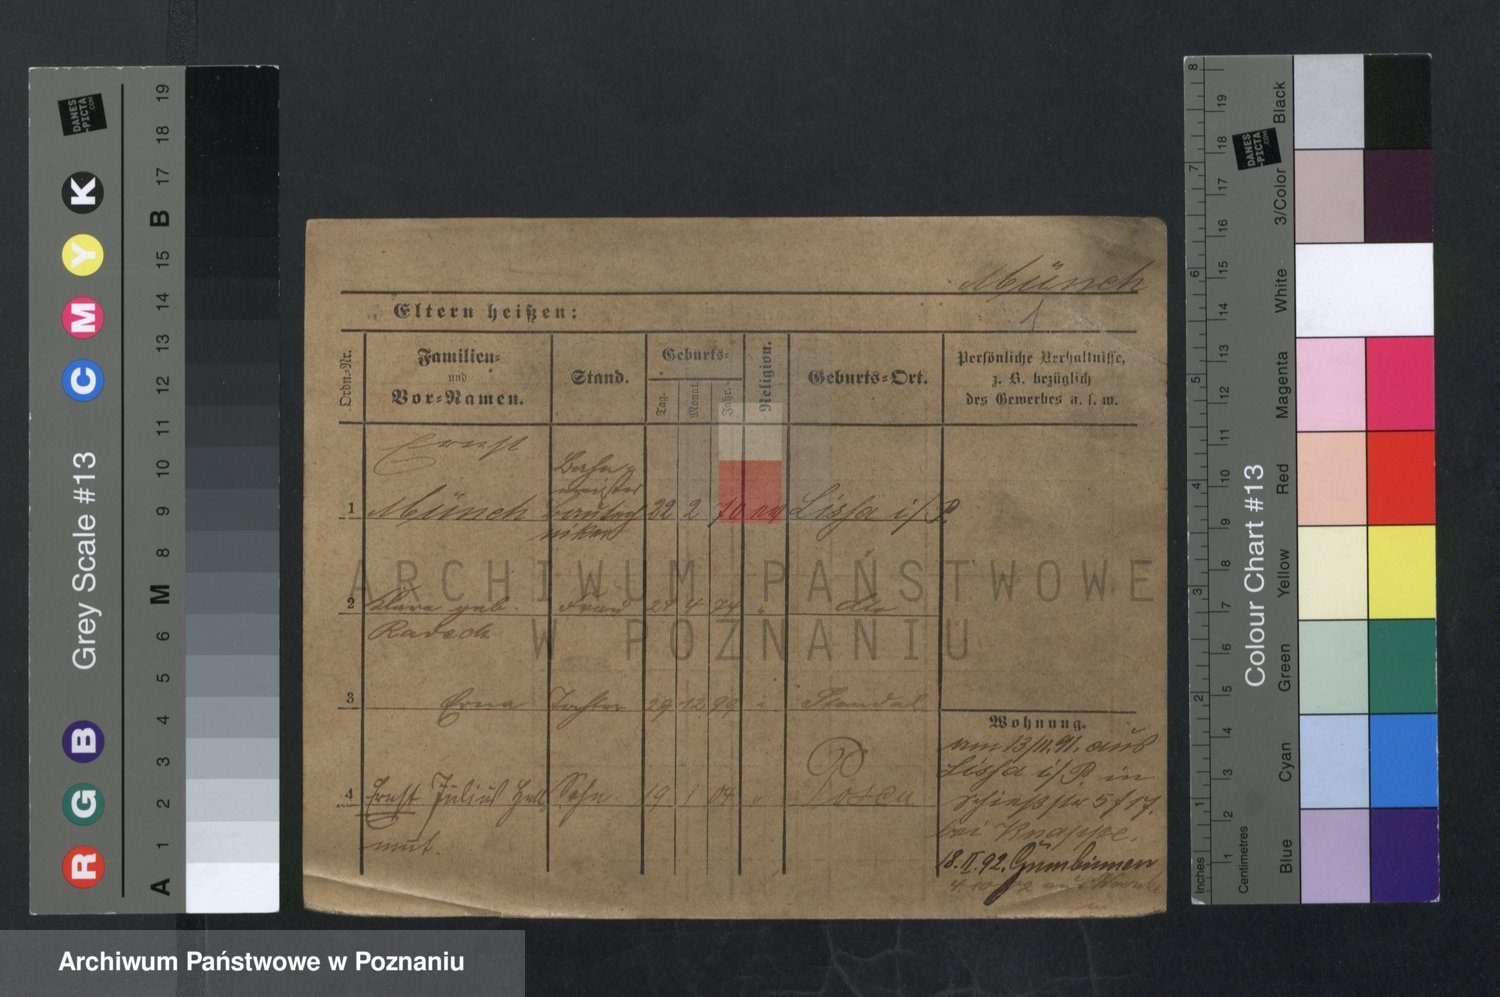 Münch
1
Eltern heißen:
Ordn.-Nr.
Familien-
und
Vor-Namen.
Stand.
Geburts-
Tag.
Monat.
Jahr.
Religion.
Geburts-Ort.
Persönliche Verhältnisse,
z. B. bezüglich
des Gewerbes u. s. w.
Ernst
1 Münch Bahn- meister 22 2 70 Lissa i/P.
2 Clara geb. Frau 24 4 74 " dto
Radeck
3 Erna Tochter 29 12 99 " Stendal
4 Ernst Julius Hell Sohn 19 1 04 " Posen
mut.
Wohnung.
am 13/11.91. aus
Lissa i/P in
Schießstr 5 b/
bei Knappe.
18.II.92. Gumbinnen
4.10.02 aus
ARCHIWUM PAŃSTWOWE
W POZNANIU
Archiwum Państwowe w Poznaniu
Grey Scale #13
R G B C M Y K
A 1 2 3 4 5 6 M 8 9 10 11 12 13 14 15 B 17 18 19
DANES
-PICTA
.COM
Colour Chart #13
DANES
-PICTA
.COM
Blue Cyan Green Yellow Red Magenta White 3/Color Black
Inches 1 2 3 4 5 6 7 8
Centimetres 1 2 3 4 5 6 7 8 9 10 11 12 13 14 15 16 17 18 19